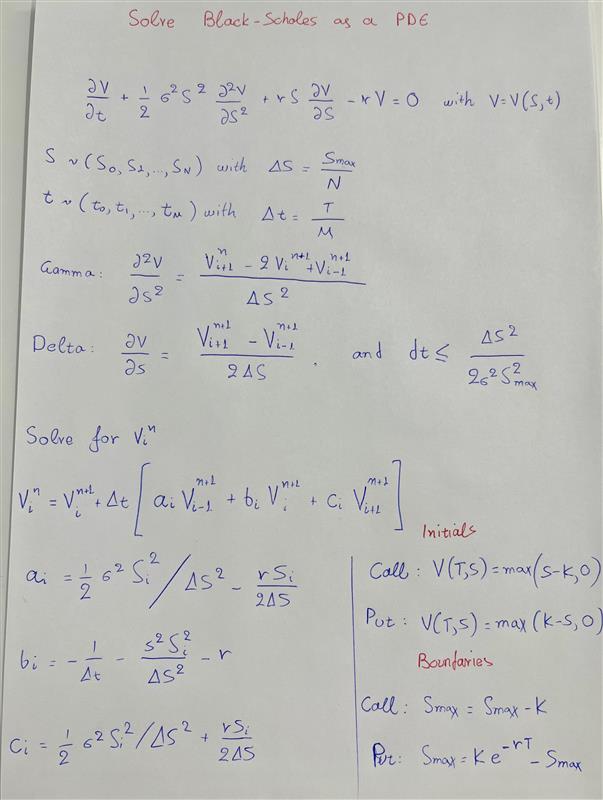 Solve Black-Scholes as a PDE
∂V/∂t + 1/2 σ² S² ∂²V/∂S² + rS ∂V/∂S - rV = 0 with V=V(S,t)
S ~ (S₀, S₁, ..., S_N) with ΔS = Smax/N
t ~ (t₀, t₁, ..., t_M) with Δt = T/M
Gamma: ∂²V/∂S² = (V_{i+1}^n - 2V_i^{n+1} + V_{i-1}^{n+1}) / ΔS²
Delta: ∂V/∂S = (V_{i+1}^{n+1} - V_{i-1}^{n+1}) / 2ΔS , and dt ≤ ΔS² / 2σ²S²max
Solve for V_i^n
V_i^n = V_i^{n+1} + Δt [ a_i V_{i-1}^{n+1} + b_i V_i^{n+1} + c_i V_{i+1}^{n+1} ]
a_i = 1/2 σ² S_i² / ΔS² - rS_i/2ΔS
b_i = - 1/Δt - s²S_i²/ΔS² - r
c_i = 1/2 σ² S_i² / ΔS² + rS_i/2ΔS
Initials
Call: V(T,S) = max(S-K,0)
Put: V(T,S) = max(K-S,0)
Bounfaries
Call: Smax = Smax - K
Put: Smax = Ke^{-rT} - Smax